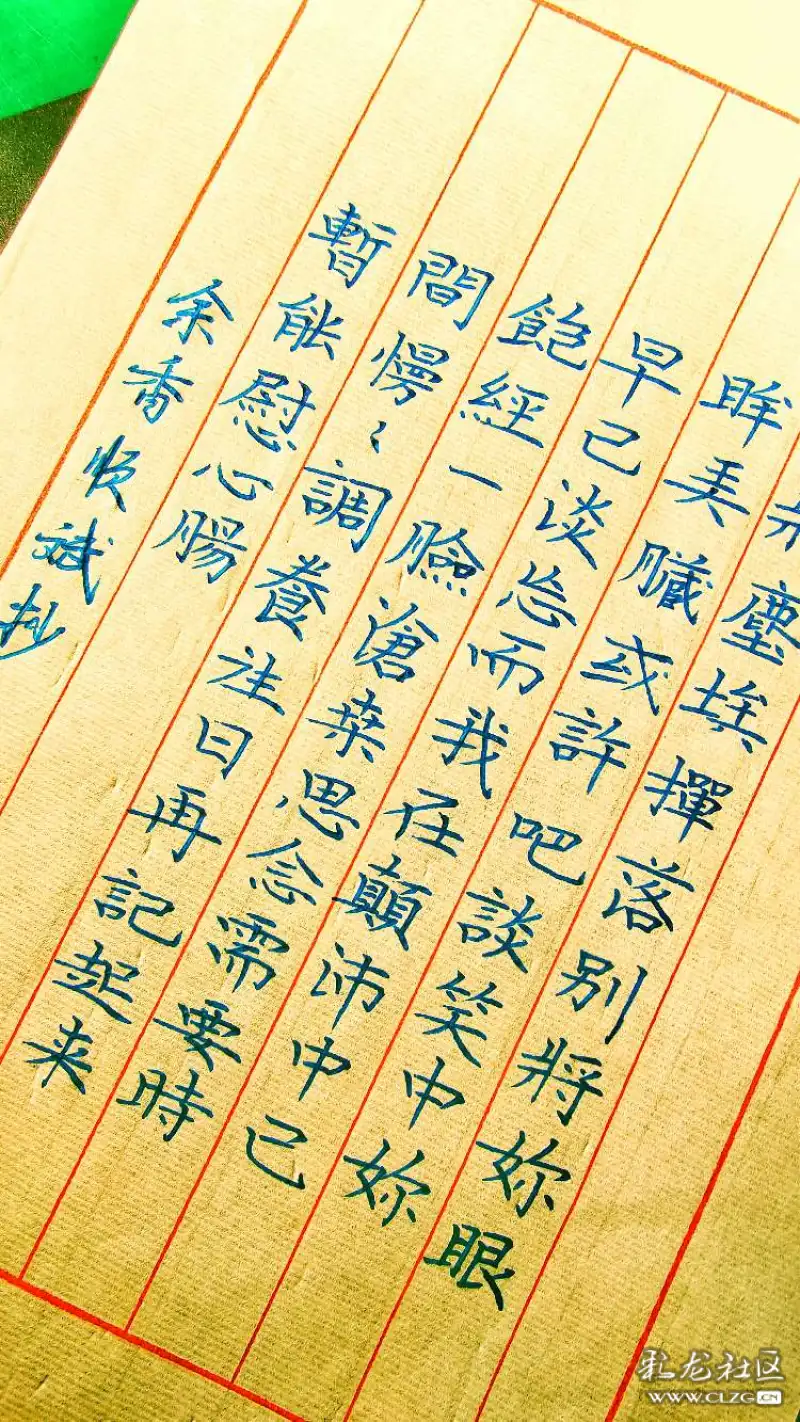 塵埃揮落别將妳眼
眸弄臟或許吧談笑中妳
早已淡忘而我在顛沛中已
飽經一臉滄桑思念需要時
間慢〻調養往日再記起来
暫能慰心腸
余香顺斌抄
彩龙社区
WWW.CLZG.CN